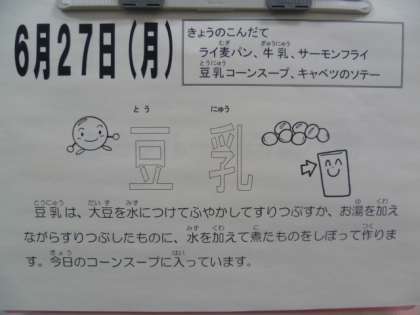 6月27日(月)
きょうのこんだて
ライ麦パン、牛乳、サーモンフライ
豆乳コーンスープ、キャベツのソテー
とう にゅう
豆乳
豆乳は、大豆を水につけてふやかしてすりつぶすか、お湯を加え
ながらすりつぶしたものに、水を加えて煮たものをしぼって作りま
す。今日のコーンスープに入っています。